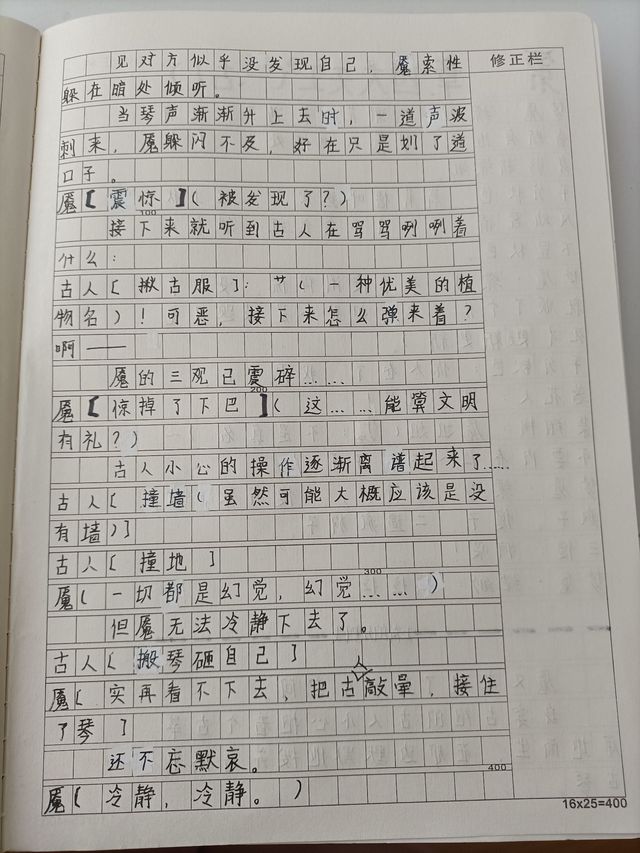 见对方似乎没发现自己，魇索性
修正栏
躲在暗处倾听。
当琴声渐渐升上去时，一道声波
刺来，魇躲闪不及，好在只是划了道
口子。
魇【震惊】（被发现了？）
100
接下来就听到古人在骂骂咧咧着
什么：
古人[揪古服]：艹（一种优美的植
物名）！可恶，接下来怎么弹来着？
啊——
魇的三观已震碎……
200
魇【惊掉了下巴】（这……能算文明
有礼？）
古人小心的操作逐渐离谱起来了……
古人[撞墙（虽然可能大概应该是没
有墙）]
古人[撞地]
300
魇（一切都是幻觉，幻觉……）
但魇无法冷静下去了。
古人[搬琴砸自己]
魇[实再看不下去，把古人敲晕，接住
了琴]
还不忘默哀。
400
魇（冷静，冷静。）
16x25=400